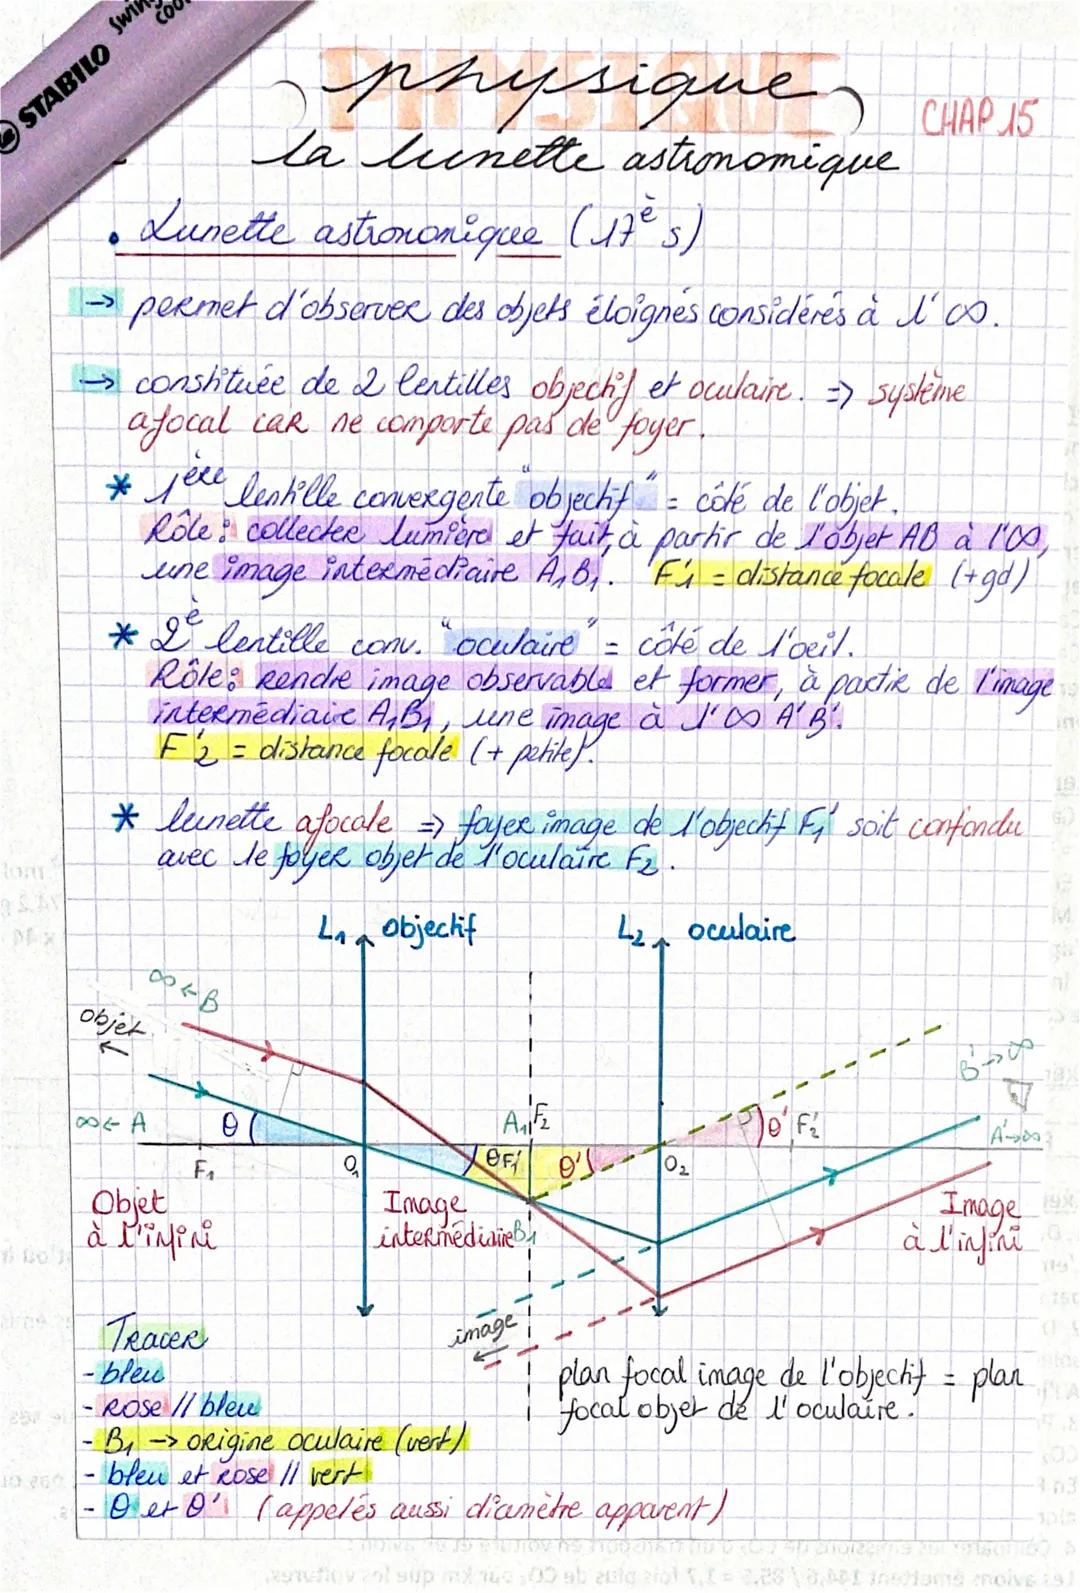 STABILO swing cool
physique
PHYSIQUE
CHAP 15
la lunette astronomique
• Lunette astronomique (17è s)
→ permet d'observer des objets éloignés considérés à l'∞.
→ constituée de 2 lentilles objectif et oculaire. => système
afocal car ne comporte pas de foyer.
* 1ère lentille convergente "objectif" = côté de l'objet.
Rôle : collecter lumière et fait, à partir de l'objet AB à l'∞,
une image intermédiaire A₁B₁. F'1 = distance focale (+gd)
* 2è lentille conv. "oculaire" = côté de l'oeil.
Rôle : rendre image observable et former, à partir de l'image
intermédiaire A₁B₁, une image à l'∞ A'B'.
F'2 = distance focale (+ petite).
* lunette afocale => foyer image de l'objectif F₁' soit confondu
avec le foyer objet de l'oculaire F₂.
L₁ objectif
L₂ oculaire
∞ ← B
objet
←
B' → ∞
∞ ← A
θ
A₁
F₂
θ'
F₂'
A' → ∞
F₁
O₁
θ
F₁'
θ'
O₂
Objet
à l'infini
Image
intermédiaire
B₁
Image
à l'infini
image
←
Tracer
- bleu
- rose // bleu
- B₁ → origine oculaire (vert)
- bleu et rose // vert
- θ et θ' (appelés aussi diamètre apparent)
plan focal image de l'objectif = plan
focal objet de l'oculaire.